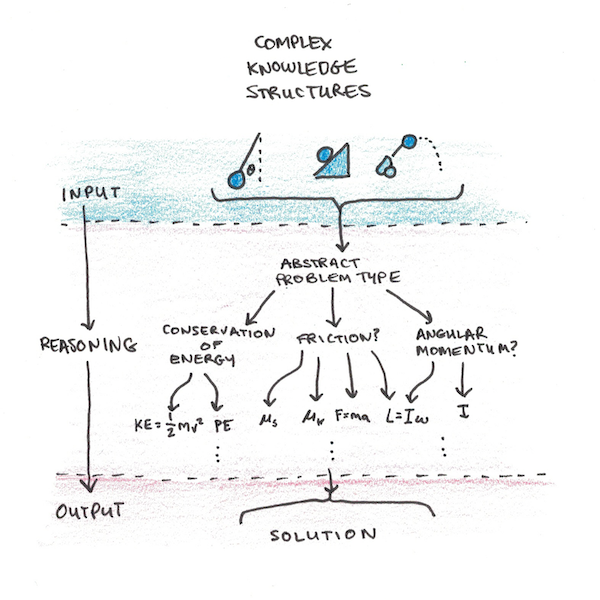 COMPLEX
KNOWLEDGE
STRUCTURES
θ
INPUT
ABSTRACT
PROBLEM TYPE
REASONING
CONSERVATION
OF
ENERGY
FRICTION?
ANGULAR
MOMENTUM?
KE = 1/2 mv² PE μs μk F=ma L=Iω I
OUTPUT
SOLUTION